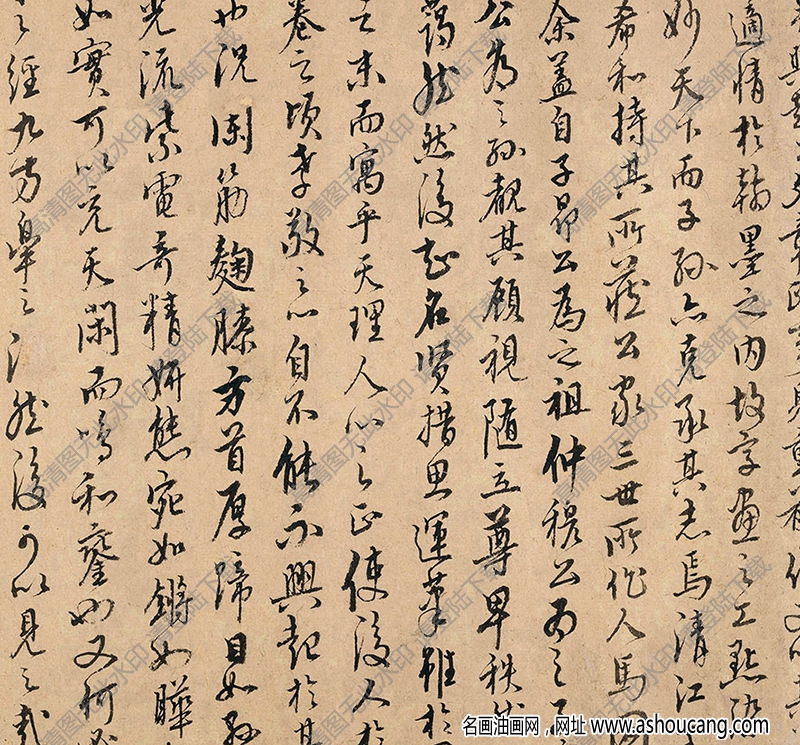 適情於翰墨之内故字畫之工點
妙天下而子孫亦克承其志焉清江
希和持其所藏公家三世所作人馬圖
余蓋自子昂公為之祖仲穆公為之
公為之孫觀其顧視隨立尊卑秩然
藹然然後知名賢措思運筆雖於
之末而寓乎天理人心之正使後人於
卷之頃孝敬之心自不能不興起於其
也況闌筋麴膝方首厚蹄目如
光流紫電奇精妍態宛如鏘如曄
如實可以充天閑而鳴和鑾也又何必
之經九方皋之然後可以見之哉
高清图无此水印 请登陆下载
名画油画网，网址 www.ashoucang.com